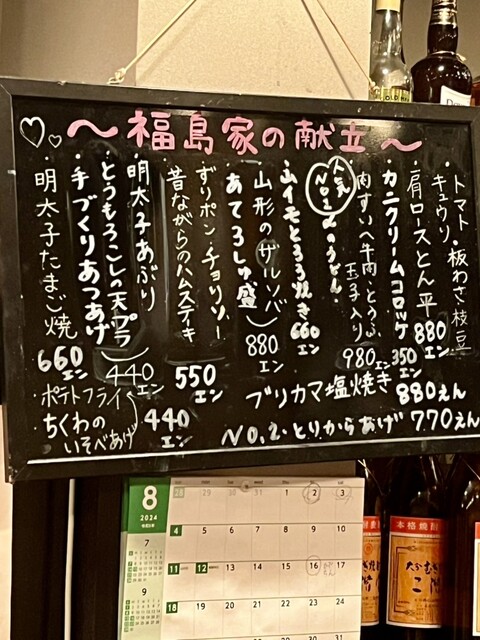 ～福島家の献立～
・トマト・板わさ・枝豆
・キュウリ
・肩ロースとん平 880エン
・カニクリームコロッケ 350エン
・肉すい(牛肉・とうふ・玉子入り) 980エン
人気No.1
・山イモとろろ焼き 660エン
・山形のザルソバ
・あてろしゅ盛 880エン
・ずりポン・チョリソー
・昔ながらのハムステーキ 550エン
・明太子あぶり
・とうもろこしの天プラ
・手づくりあつあげ 440エン
・明太子たまご焼 660エン
・ポテトフライ
・ちくわのいそべあげ 440エン
ブリカマ塩焼き 880えん
No.2・とりからあげ 770えん
8
2024
7
9
28 29 30 31 1 2 3
4 5 6 7 8 9 10
11 12 13 14 15 16 17
18 19 20 21 22 23 24
本格焼酎